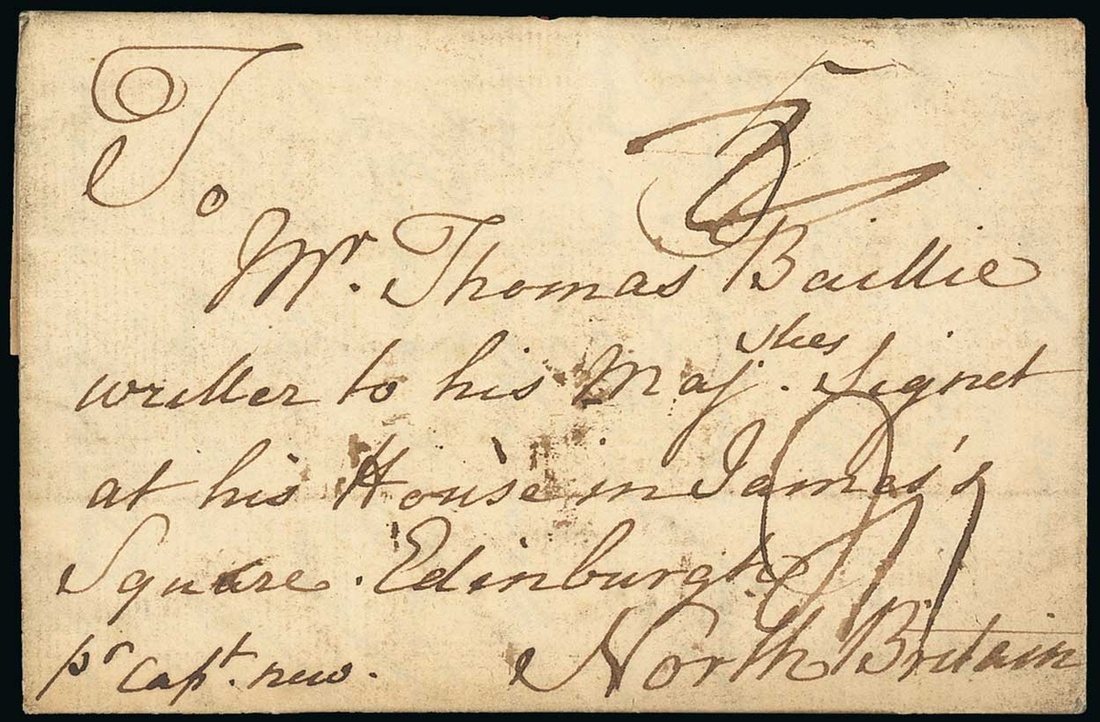 To
Mr. Thomas Baillie
writter to his Maj.sties Signet
at his House in James's
Square. Edinburgh
North Britain
pr Capt. new.